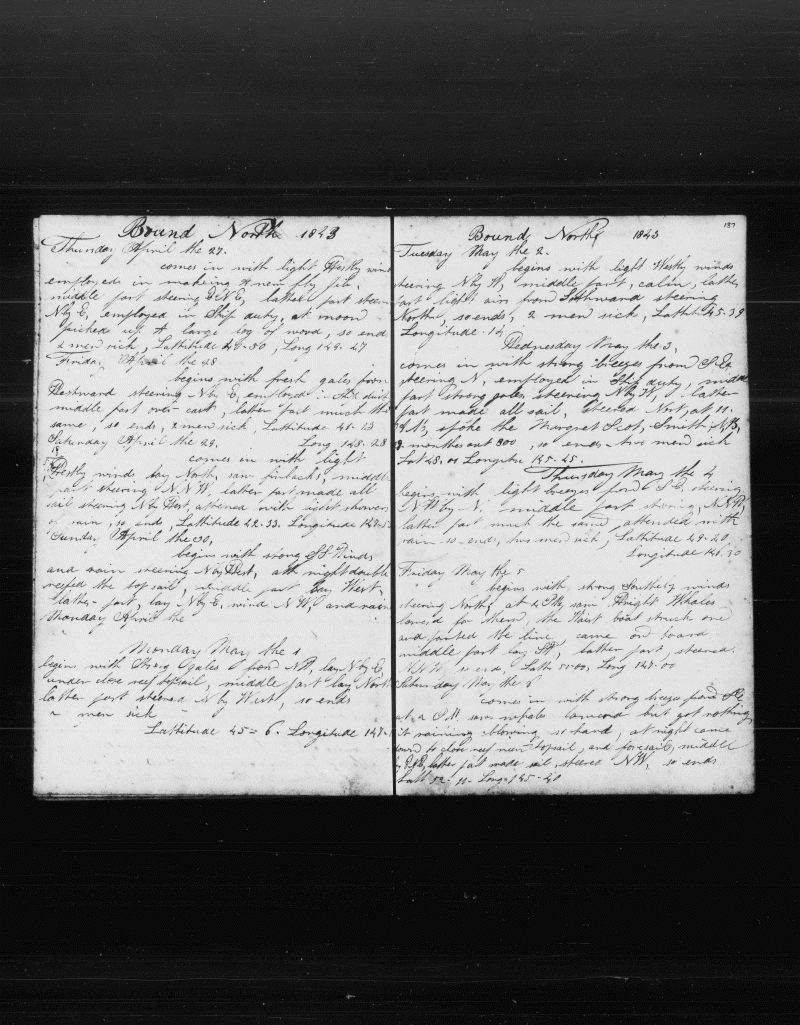 Bound North 1843
Thursday April the 27.
comes in with light Westly wind
employed in making a new fly jib.
middle part steering N E, latter part steern
N by E, employed in Ship duty, at moon
picked up A large log of wood, so end
2 men sick, Lattitude 40-50, Long 149-47
Friday April the 28
begins with fresh gales from
Westward steering N by E, employed Ship duty
middle part over cast, latter part much the
same, so ends, 2 men sick, Lattitude 41-13
Saturday April the 29, Long 148-28
comes in with light
Westly winds lay North, saw finbacks, middle
part steering N.N.W, latter part made all
sail steering N by West, attened with light showers
of rain, so ends, Lattitude 42-33. Longitude 147-5
Sunday April the 30,
begins with strong S E Winds
and rain steering N by West, at night double
reefed the top sail, middle part lay West,
latter part, lay N by E, wind N W, and rain
Monday April the
Monday May the 1
begins with Strong gales from N W, lay N by E,
under close reef topsail, middle part lay North
latter part steered N by West, so ends
2 men sick
Lattitude 45=6. Longitude 147-
187
Bound North 1843
Tuesday May the 2.
begins with light Westly winds
steering N by W, middle part, calm, latter
part light airs from Southward steering
North, so ends, 2 men sick, Lattit 45-39
Longitude - 14
Wednesday May the 3,
comes in with strong breezes from S.E.
steering N, employed in Ship duty, middle
part strong gales, steering N by W, latter
part made all sail, steered Nort, at 11.
A M, spoke the Margret Scot, Smith N B,
months out 300, so ends two men sick
Lat 48.00 Longitu 145-45.
Thursday May the 4
begins with light breezes from S E, steering
N W by N, middle part strong, N N W,
latter part much the same, attended with
rain so ends, two men sick, Lattitude 49-20,
Longitude 146.30
Friday May the 5
begins with strong Southerly winds
steering North, at 2 PM, saw Wright Whales
lowerd for them, the Waist boat struck one
and parted the line, came on board
middle part lay SW, latter part, steered
N W, so ends, Latt 51-00, Long 147-00
Saturday May the 6
comes in with strong breeze from S E
at 2 P.M. saw whales lowered but got nothing
it raining blowing so hard, at night came
down to close reef main topsail, and foresail, middle
latter part made sail, steered N W, so ends
Latt 52-11- Long 145-40